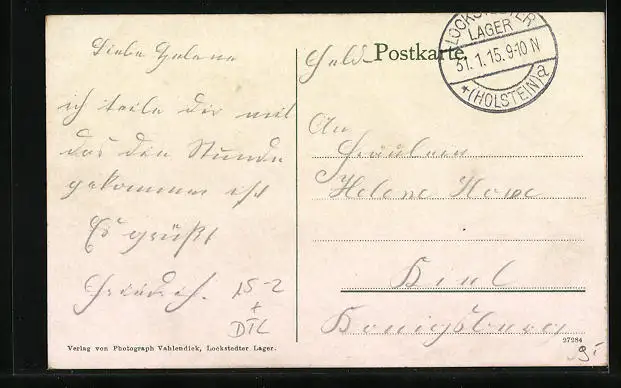 Liebe Helene
ich teile dir mit
das die Stunde
gekommen ist
Es grüßt
Friedrich.
15-2
+
DTC
Verlag von Photograph Vahlendick, Lockstedter Lager.
Feld Postkarte.
LOCKSTEDTER
LAGER
31.1.15.9-10 N
*(HOLSTEIN)a
An
Fräulein
Helene
Kiel
Königsburg
27284
9,-